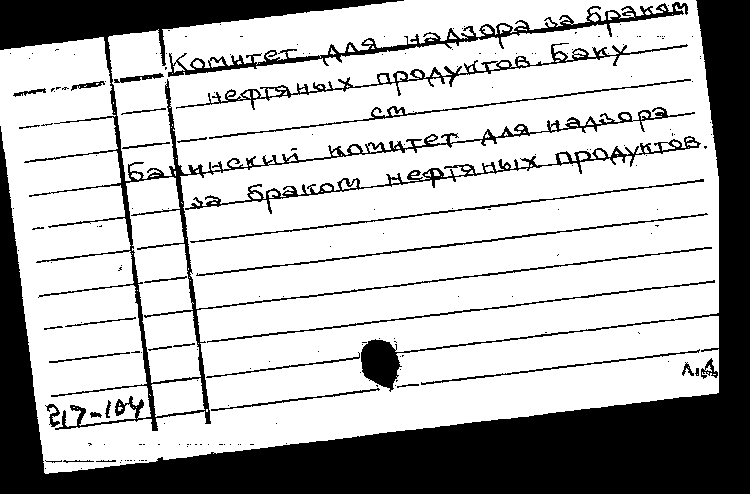 Комитет для надзора за браком
нефтяных продуктов. Баку
см
Бакинский комитет для надзора
за браком нефтяных продуктов.
217-104
Л.Д